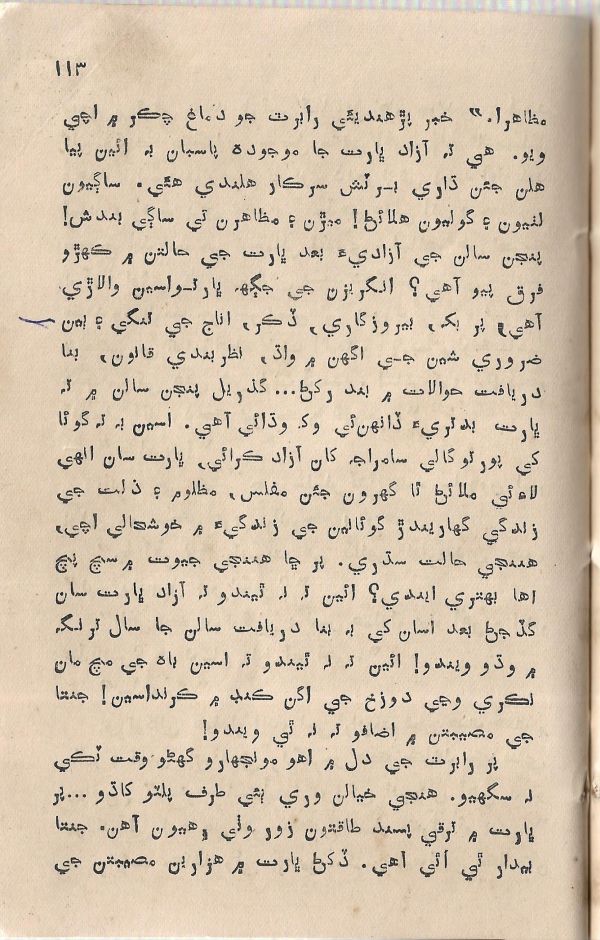 ۱۱۳
مظاهرا.” خبر پڙهنديئي رابرٽ جو دماغ چڪر ۾ اچي
ويو. هي تہ آزاد ڀارت جا موجوده پاسبان بہ ائين پيا
هلن جئن ڌاري برٽش سرڪار هلندي هئي. ساڳيون
لٺيون ۽ گوليون هلائڻ! ميڙن ۽ مظاهرن تي ساڳي بندش!
پنجن سالن جي آزاديءَ بعد ڀارت جي حالتن ۾ ڪهڙو
فرق پيو آهي؟ انگريزن جي جڳهہ ڀارت-واسين والاڙي
آهي، پر بک، بيروزگاري، ڏڪر، اناج جي تنگي ۽ ٻين
ضروري شين جي اگهن ۾ واڌ، نظربندي قانون، بنا
دريافت حوالات ۾ بند رکڻ... گذريل پنجن سالن ۾ تہ
ڀارت بدتريءَ ڏانهن ئي وک وڌائي آهي. اسين بہ تہ گوئا
کي پورٽوگالي سامراجہ کان آزاد ڪرائي، ڀارت سان انهي
لاءِ ئي ملائڻ ٿا گهرون جئن مفلس، مظلوم ۽ ذلت جي
زندگي گهاريندڙ گوئانين جي زندگيءَ ۾ خوشحالي اچي،
هنجي حالت سڌري. پر ڇا هنجي جيوت ۾ سچ پچ
اها بهتري ايندي؟ ائين تہ نہ ٿيندو تہ آزاد ڀارت سان
گڏجڻ بعد اسان کي بہ بنا دريافت سالن جا سال ترنگہ
۾ وڌو ويندو! ائين تہ نہ ٿيندو تہ اسين باهہ جي مچ مان
نڪري وڃي دوزخ جي اگن ڪنڊ ۾ ڪرنداسين! جنتا
جي مصيبتن ۾ اضافو تہ نہ ٿي ويندو!
پر رابرٽ جي دل ۾ اهو مونجهارو گهڻو وقت ٽڪي
نہ سگهيو. هنجي خيالن وري ٻئي طرف پلٽو کاڌو... پر
ڀارت ۾ ترقي پسند طاقتون زور وٺي رهيون آهن. جنتا
بيدار ٿي اٿي آهي. ڏکڻ ڀارت ۾ هزارين مصيبتن جي